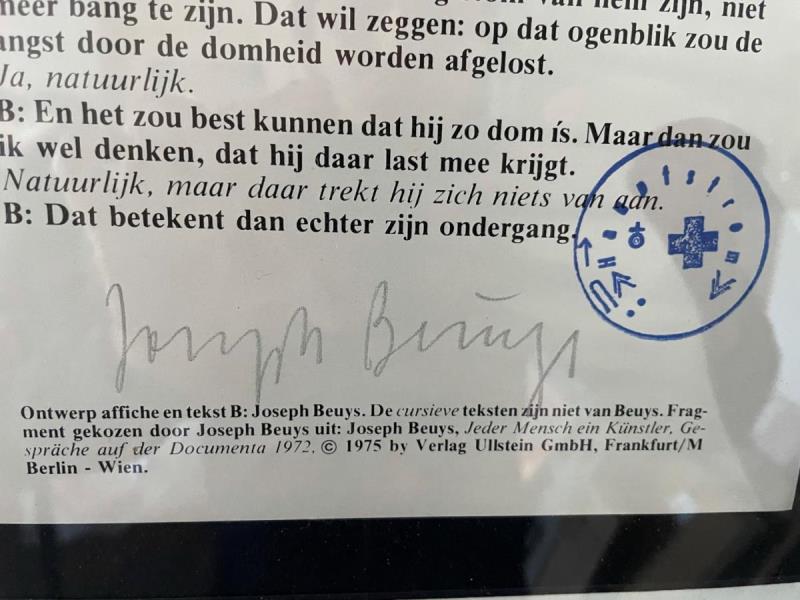 meer bang te zijn. Dat wil zeggen: op dat ogenblik zou de
angst door de domheid worden afgelost.
Ja, natuurlijk.
B: En het zou best kunnen dat hij zo dom ís. Maar dan zou
ik wel denken, dat hij daar last mee krijgt.
Natuurlijk, maar daar trekt hij zich niets van aan.
B: Dat betekent dan echter zijn ondergang.
Joseph Beuys
Ontwerp affiche en tekst B: Joseph Beuys. De cursieve teksten zijn niet van Beuys. Frag-
ment gekozen door Joseph Beuys uit: Joseph Beuys, Jeder Mensch ein Künstler, Ge-
spräche auf der Documenta 1972, © 1975 by Verlag Ullstein GmbH, Frankfurt/M
Berlin - Wien.